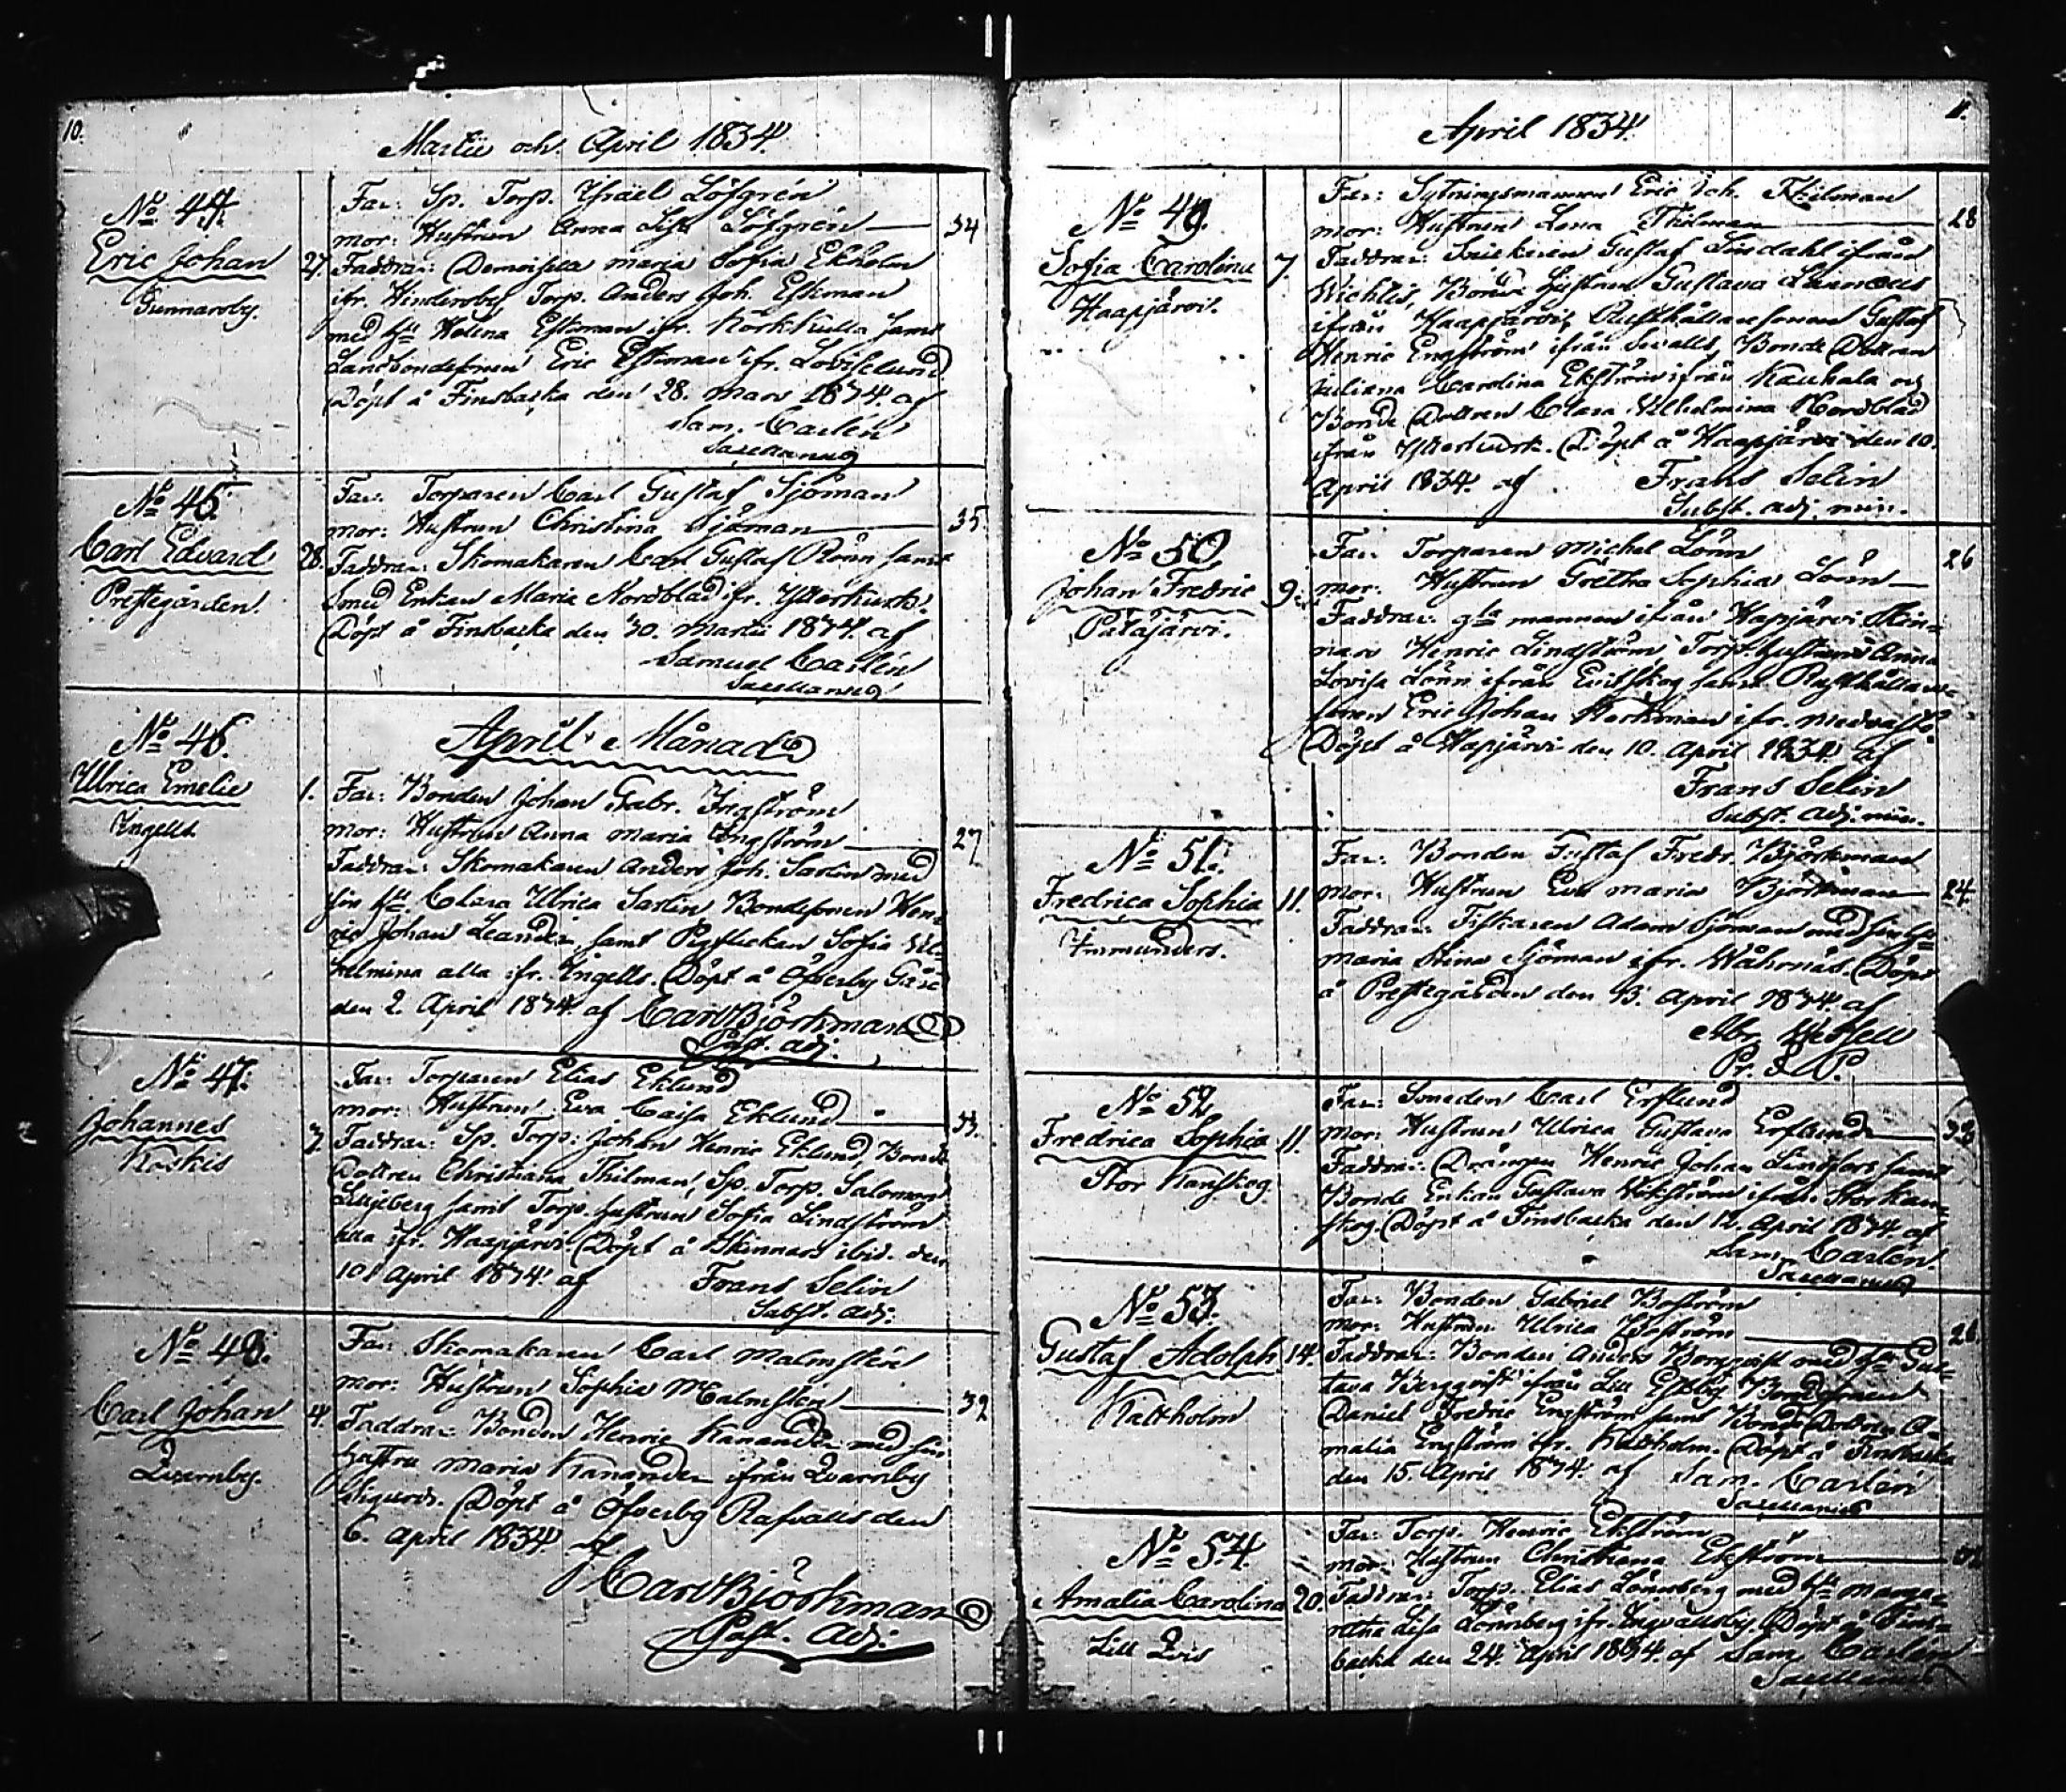 10.
Martii och April 1834.
No 44.
Eric Johan
Gunnarsby.
27.
Far: Sp. Torp. Israel Löfgrén
mor: Hustrun Anna Lisa Löfgrén
34
Faddrar: Demoisella Maria Sofia Ekholm
ifr. Hindersby, Torp. Anders Joh. Eskman
med Hu Helena Eskman ifr. Körkkulla samt
Landbondesonen Eric Eskman ifr. Loviselund
Döpt å Finsbacka den 28. Mars 1834. af
Sam. Carlén
Sacellanus
No 45.
Carl Edvard
Prestegården.
28.
Far: Torparen Carl Gustaf Sjöman
mor: Hustrun Christina Sjöman
35.
Faddrar: Skomakaren Carl Gustaf Rönn samt
Smed Enkan Maria Nordblad ifr.
Döpt å Finsbacka den 30. Martii 1834. af
Samuel Carlén
Sacellanus
No 46.
Ulrica Emelie
Ingells
1.
April Månad
Far: Bonden Johan Gabr. Engström
mor: Hustrun Anna Maria Engström
27
Faddrar: Skomakaren Anders Joh. Sarlin med
sin Hu Clara Ulrica Sarlin Bondesonen Hen-
ric Johan Leander, samt Pigflickan Sofia Vil-
helmina alla ifr. Ingells. Döpt å Öfverby Gård
den 2. April 1834. af Carl Björkman
Past. adj.
No 47.
Johannes
Koskis
3.
Far: Torparen Elias Eklund
mor: Hustrun Eva Caisa Eklund
33.
Faddrar: Sp. Torp: Johan Henric Eklund, Bonde
Dottren Christiana Thilman, Sp. Torp. Salomon
Liljeberg samt Torp. hustrun Sofia Lindström
ifr. Haapjärvi. Döpt å Skinnars ibid. den
10 April 1834. af Frans Selin
Subst. Adj.
No 48.
Carl Johan
Qvarnby.
4.
Far: Skomakaren Carl Malmstén
mor: Hustrun Sophia Malmstén
32
Faddrar: Bonden Henric Kanander med sin
hustru Maria Kanander ifrån Qvarnby
Sigurds. Döpt å Öfverby Rafvalls den
6. April 1834. af
Carl Björkman
Past. Adj.
11.
April 1834.
No 49.
Sofia Carolina
Haapjärvi.
7.
Far: Sytningsmannen Eric Joh. Thilman
mor: Hustrun Lena Thilman
28
Faddrar: Snickaren Gustaf Lindahl ifrån
Wichtis, Bonde Hustrun Gustava
ifrån Haapjärvi, Rusthållare sonen Gustaf
Henric Engström ifrån Sevalls, Bonde Dottren
Juliana Carolina Ekström ifrån Kauhala och
Bonde Dottren Clara Vilhelmina Nordblad
ifrån Döpt å Haapjärvi den 10.
April 1834. af Frans Selin
Subst. adj. min.
No 50
Johan Fredric
Palajärvi.
9.
Far: Torparen Michel Lönn
mor: Hustrun Gretha Sophia Lönn
26
Faddrar: gla mannen ifrån Hapjärvi Skin-
nars Henric Lindström Torp. hustrun Anna
Lovisa Lönn ifrån Evitskog samt Rusthållare-
sonen Eric Johan Workman ifr.
Döpt å Hapjärvi den 10. April 1834. af
Frans Selin
Subst. Adj. min.
No 51.
Fredrica Sophia
Ingmunders.
11.
Far: Bonden Gustaf Fredr. Björkman
mor: Hustrun Eva Maria Björkman
24.
Faddrar: Fiskaren Adam Sjöman med sin Hu
Maria Stina Sjöman ifr. Wåhrnäs. Döpt
å Prestegården den 13. April 1834. af
Abr.
Pr. & P.
No 52
Fredrica Sophia
Stor Kanskog
11.
Far: Smeden Carl Erslund
mor: Hustrun Ulrica Gustava Erslund
Faddrar: Drängen Henric Johan Lindfors samt
Bonde Enkan Gustava Wekström ifrån Stor Kan-
skog. Döpt å Finsbacka den 12. April 1834. af
Sam. Carlén.
Sacellanus
No 53.
Gustaf Adolph
Kaltholm
14.
Far: Bonden Gabriel Boström
mor: Hustrun Ulrica Boström
26.
Faddrar: Bonden Anders Bergqvist med Hu Gus-
tava Bergqvist ifrån Lill Eskby Bondesonen
Daniel Fredric Engström samt Bonde Dottren A-
malia Engström ifr. Kaltholm. Döpt å Finsbacka
den 15. April 1834. af Sam. Carlén
Sacellanus
No 54.
Amalia Carolina
Lill Qvis
20.
Far: Torp. Henric Ekström
mor: Hustrun Christiana Ekström
Faddrar: Torp. Elias Lönnberg med Hu Marga-
retha Lisa Lönnberg ifr. Ingvalsby. Döpt å Fins-
backa den 24. April 1834. af Sam. Carlén
Sacellanus